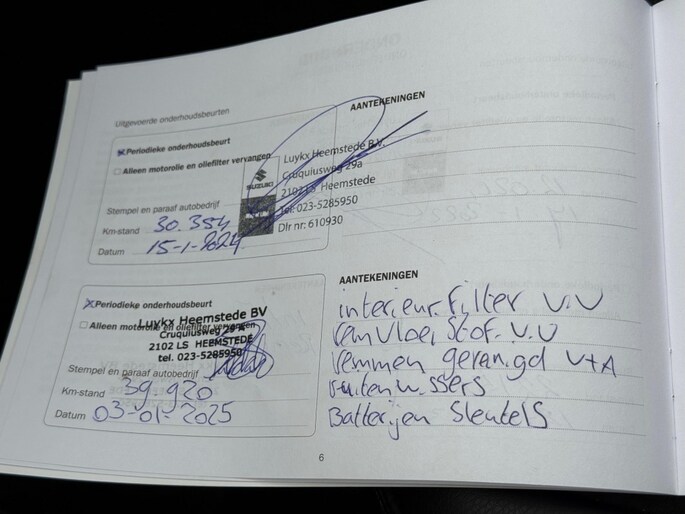 Uitgevoerde onderhoudsbeurten
AANTEKENINGEN
Periodieke onderhoudsbeurt
Alleen motorolie en oliefilter vervangen
SUZUKI
Luykx Heemstede B.V.
Cruquiusweg 29a
2102 LS Heemstede
Tel: 023-5285950
Dlr nr: 610930
Stempel en paraaf autobedrijf
Km-stand 30.354
Datum 15-1-2024
AANTEKENINGEN
Periodieke onderhoudsbeurt
Alleen motorolie en oliefilter vervangen
Luykx Heemstede BV
Cruquiusweg 29 A
2102 LS HEEMSTEDE
tel. 023-5285950
Stempel en paraaf autobedrijf
Km-stand 39.920
Datum 03-01-2025
interieur filter V.V
remvloei stof. V.V
remmen gerangd V+A
ruitenwissers
Batterijen sleutels
6